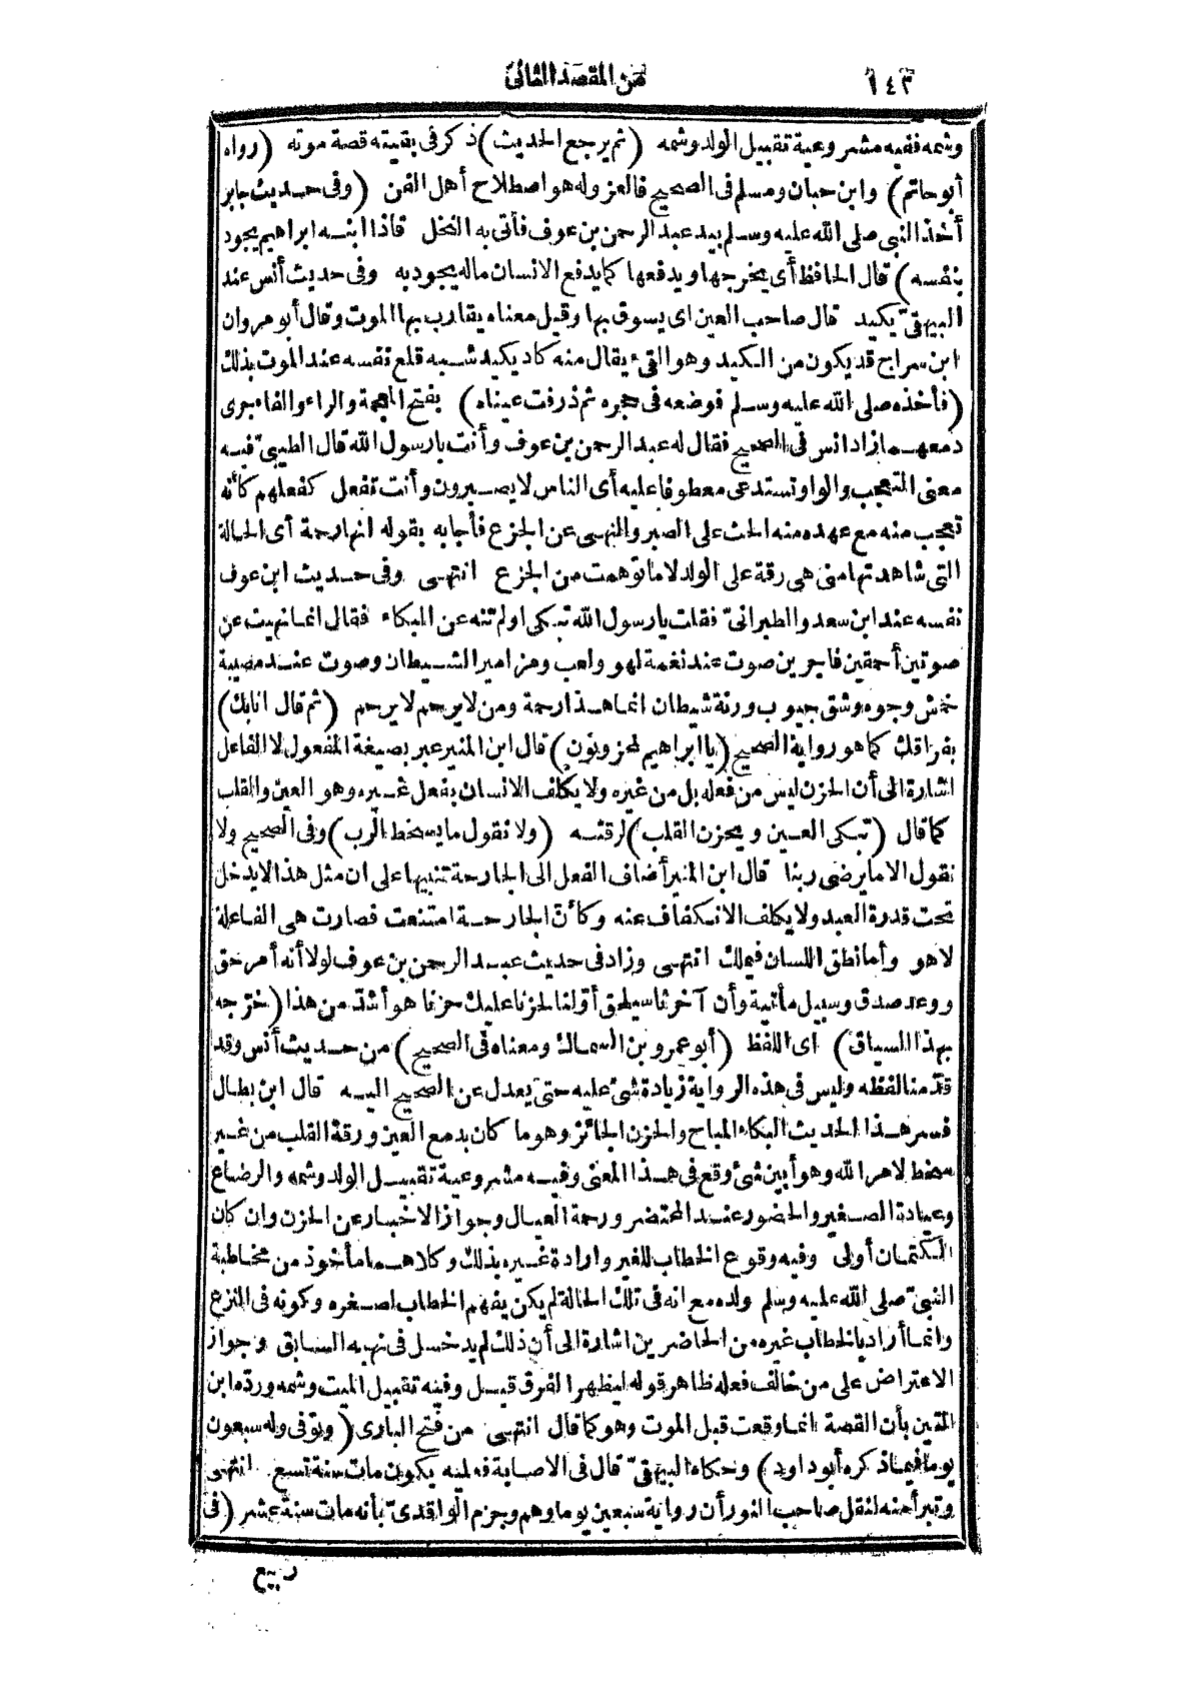 ١٤٣ من المقصد الثانى
وشمه ففيه مشروعية تقبيل الولد وشمه (ثم يرجع الحديث) ذكر فى بقيته قصة موته (رواه
أبو حاتم) وابن حبان ومسلم فى الصحيح فالعزو له هو اصطلاح أهل الفن (وفى حديث جابر
أخذ النبى صلى الله عليه وسلم بيد عبد الرحمن بن عوف فأتى به النخل فاذا ابنه ابراهيم يجود
بنفسه) قال الحافظ أى يخرجها ويدفعها كما يدفع الانسان ماله يجود به وفى حديث أنس عند
البيهقىّ يكيد قال صاحب العين اى يسوق بها وقيل معناه يقارب بها الموت وقال أبو مروان
ابن سراج قد يكون من الكيد وهو القىء يقال منه كاد يكيد شبه قلع نفسه عند الموت بذلك
(فأخذه صلى الله عليه وسلم فوضعه فى حجره ثم ذرفت عيناه) بفتح المعجمة والراء والفاء جرى
دمعهما زاد انس فى الصحيح فقال له عبد الرحمن بن عوف وأنت يا رسول الله قال الطيبىّ فيه
معنى التعجب والواو تستدعى معطوفا عليه أى الناس لا يصبرون وأنت تفعل كفعلهم كأنه
تعجب منه مع عهده منه الحث على الصبر والنهى عن الجزع فأجابه بقوله انها رحمة أى الحالة
التى شاهدتها منى هى رقة على الولد لا ما توهمت من الجزع انتهى وفى حديث ابن عوف
نفسه عند ابن سعد والطبرانىّ فقلت يا رسول الله تبكى اولم تنه عن البكاء فقال انما نهيت عن
صوتين أحمقين فاجرين صوت عند نغمة لهو ولعب ومزامير الشيطان وصوت عند مصيبة
خمش وجوه وشق جيوب ورنة شيطان انما هذا رحمة ومن لا يرحم لا يرحم (ثم قال انا بك)
بفراقك كما هو رواية الصحيح (يا ابراهيم لمحزونون) قال ابن المنير عبر بصيغة المفعول لا الفاعل
اشارة الى أن الحزن ليس من فعله بل من غيره ولا يكلف الانسان بفعل غيره وهو العين والقلب
كما قال (تبكى العين ويحزن القلب) لرقته (ولا نقول ما يسخط الرب) وفى الصحيح ولا
نقول الا ما يرضى ربنا قال ابن المنير أضاف الفعل الى الجارحة تنبيها على ان مثل هذا لا يدخل
تحت قدرة العبد ولا يكلف الانكفاف عنه وكأنّ الجارحة امتنعت فصارت هى الفاعلة
لا هو وأما نطق اللسان فيملك انتهى وزاد فى حديث عبد الرحمن بن عوف لولا أنه أمر حق
ووعد صدق وسبيل مأتية وأن آخرنا سيلحق أوّلنا لحزنا عليك حزنا هو أشدّ من هذا (خرّجه
بهذا السياق) اى اللفظ (أبو عمرو بن السماك ومعناه فى الصحيح) من حديث أنس وقد
قدّمنا لفظه وليس فى هذه الرواية زيادة شئ عليه حتى يعدل عن الصحيح اليه قال ابن بطال
فسر هذا الحديث البكاء المباح والحزن الجائز وهو ما كان بدمع العين ورقة القلب من غير
سخط لامر الله وهو أبين شئ وقع فى هذا المعنى وفيه مشروعية تقبيل الولد وشمه والرضاع
وعيادة الصغير والحضور عند المحتضر ورحمة العيال وجواز الاخبار عن الحزن وان كان
الكتمان أولى وفيه وقوع الخطاب للغير وارادة غيره بذلك وكلاهما مأخوذ من مخاطبة
النبىّ صلى الله عليه وسلم ولده مع انه فى تلك الحالة لم يكن يفهم الخطاب لصغره وكونه فى النزع
وانما أراد بالخطاب غيره من الحاضرين اشارة الى أن ذلك لم يدخل فى نهيه السابق وجواز
الاعتراض على من خالف فعله ظاهر قوله ليظهر الفرق قيل وفيه تقبيل الميت وشمه وردّه ابن
المنير بأن القصة انما وقعت قبل الموت وهو كما قال انتهى من فتح البارى (وتوفى وله سبعون
يوما فيما ذكره أبو داود) وحكاه البيهقىّ قال فى الاصابة فعليه يكون مات سنة تسع انتهى
وتبرأ منه لنقل صاحب النور أن رواية سبعين يوما وهم وجزم الواقدىّ بأنه مات سنة عشر (فى
ربيع